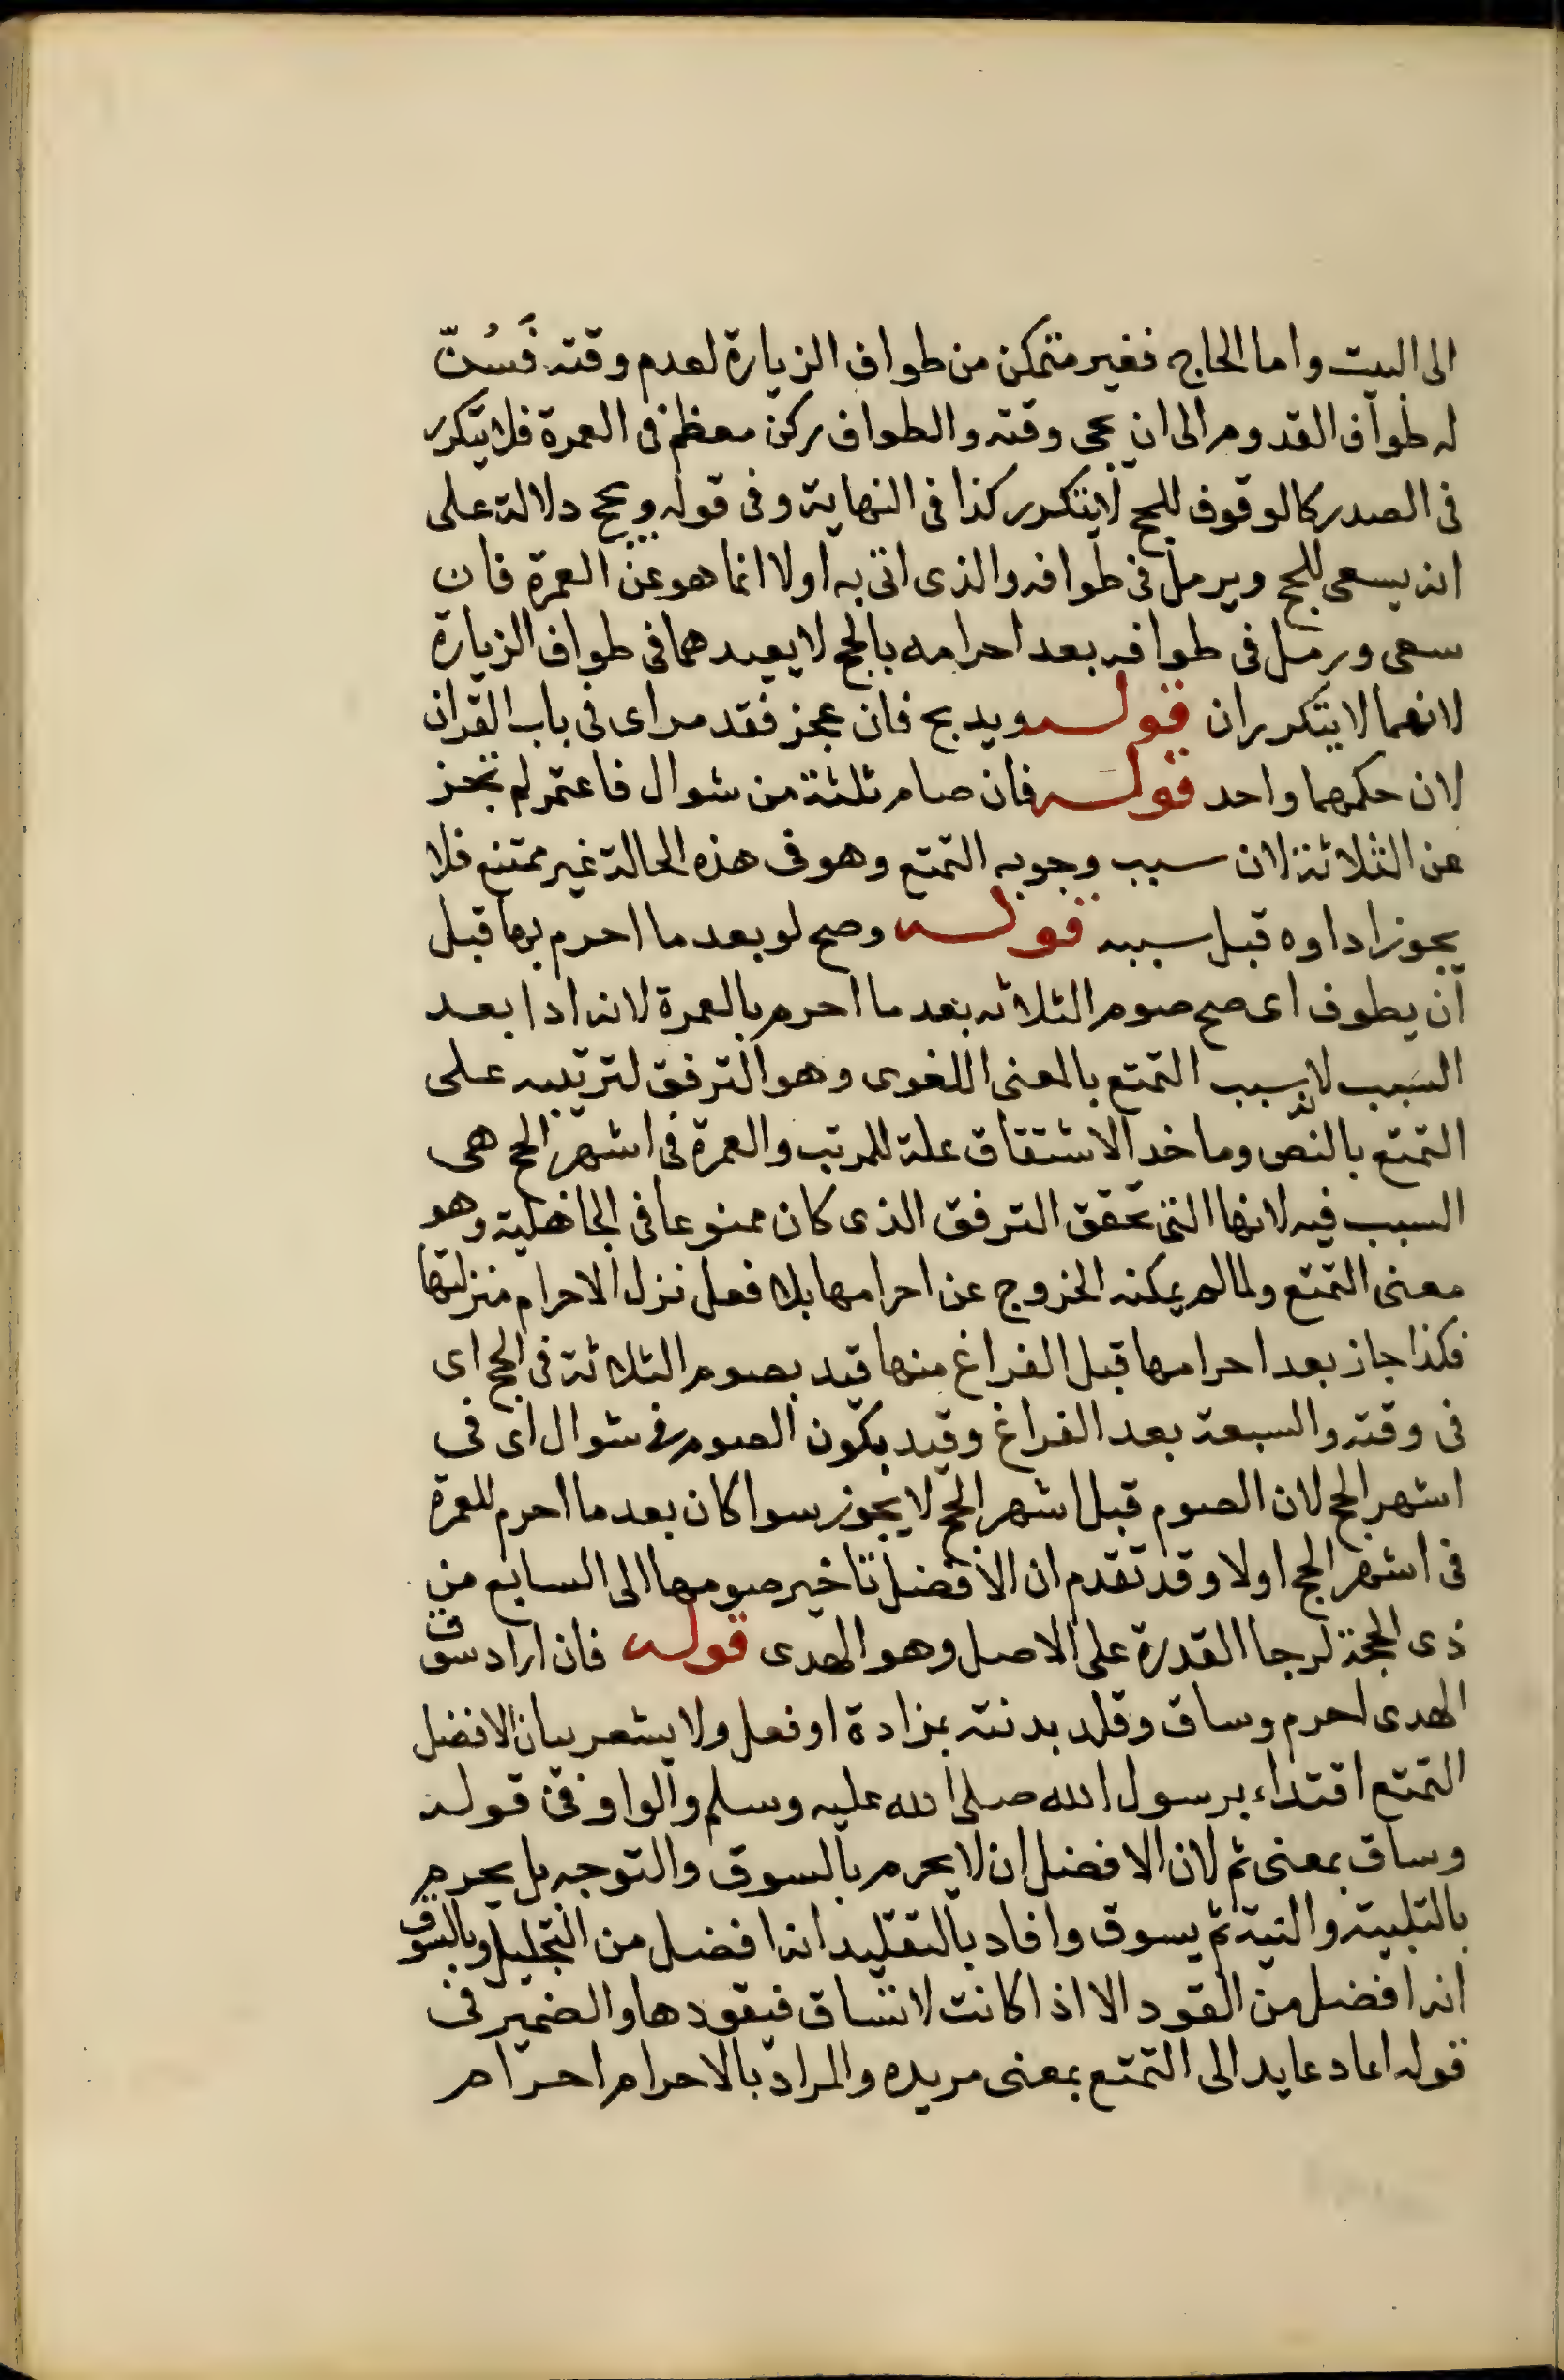 الى البيت واما الحاج فغير متمكن من طواف الزيارة لعدم وقته فَسُنّ
له طواف القدوم الى ان يجى وقته والطواف ركن معظم فى العمرة فلا يتكرر
فى الصدر كالوقوف للحج لا يتكرر كذا فى النهاية وفى قوله ويحج دلالة على
انه يسعى للحج ويرمل فى طوافه والذى اتى به اولا انما هو عن العمرة فان
سعى ورمل فى طوافه بعد احرامه بالحج لا يعيدهما فى طواف الزيارة
لانهما لا يتكرران قوله ويدبح فان عجز فقد مر اى فى باب القران
لان حكمهما واحد قوله فان صام ثلثة من شوال فاعتمر لم تجز
عن الثلاثة لان سبب وجوبه التمتع وهو فى هذه الحالة غير متمتع فلا
يجوز اداوه قبل سببه قوله وصح لو بعد ما احرم بها قبل
ان يطوف اى صح صوم الثلاثه بعد ما احرم بالعمرة لانه ادا بعد
السبب لانه سبب التمتع بالمعنى اللغوى وهو الترفق لترتيبه على
التمتع بالنص وماخد الاشتقاق علة للمرتب والعمرة فى اشهر الحج هى
السبب فيه لانها التى تحقق الترفق الذى كان ممنوعا فى الجاهلية وهو
معنى التمتع ولما لم يمكنه الخروج عن احرامها بلا فعل نزل الاحرام منزلتها
فكذا جاز بعد احرامها قبل الفراغ منها قيد بصوم الثلاثة فى الحج اى
فى وقته والسبعة بعد الفراغ وقيد بكون الصوم فى شوال اى فى
اشهر الحج لان الصوم قبل اشهر الحج لا يجوز سوا كان بعد ما احرم للعمرة
فى اشهر الحج اولا وقد تقدم ان الافضل تاخير صومها الى السابع من
ذى الحجة لرجا القدرة على الاصل وهو الهدى قوله فان اراد سوق
الهدى احرم وساق وقلد بدنته بمزادة او فعل ولا يشعر بيان الافضل
التمتع اقتداء برسول الله صلى الله عليه وسلم والواو فى قوله
وساق بمعنى ثم لان الافضل ان لا يحرم بالسوق والتوجه بل يحرم
بالتلبية والنية ثم يسوق وافاد بالتقليد انه افضل من التجليل وبالسوق
انه افضل من القود الا اذا كانت لا تنساق فيقودها والضمير فى
قوله اعاد عايد الى التمتع بمعنى مريده والمراد بالاحرام احرام